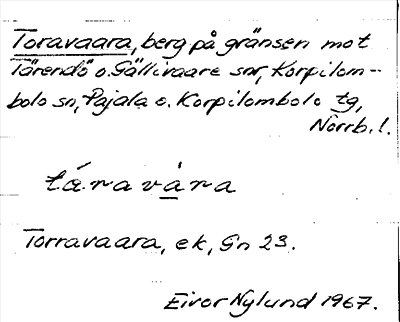 Toravaara, berg på gränsen mot
Tärendö o. Gällivaare snr, Korpilom-
bolo sn, Pajala o. Korpilombolo tg,
Norrb. l.
tɑ́ravàra
Torravaara, ek, Gn 23.
Eivor Nylund 1967.